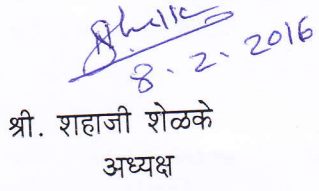 8.2.2016
श्री. शहाजी शेळके
अध्यक्ष